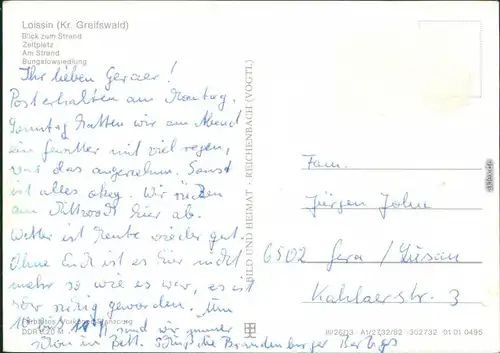 Loissin (Kr. Greifswald)
Blick zum Strand
Zeltplatz
Am Strand
Bungalowsiedlung
Ihr lieben Geraer!
Post erhalten am Montag.
Sonntag hatten wir am Abend
ein Gewitter mit viel regen,
war das angenehm. Sonst
ist alles okay. Wir rücken
am Mittwoch hier ab.
Wetter ist heute wieder gut.
Ohne Euch ist es hier nicht
mehr so wie es war, es ist
sehr ruhig geworden. Um
sind wir immer
schon im Bett. Grüße die Brandenburger
BILD UND HEIMAT · REICHENBACH (VOGTL)
Fam.
Jürgen John
6502 Gera / Lusan
Kahlaerstr. 3
DDR 0,20 M
III/26/13 A1/2732/82 302732 01 01 0495